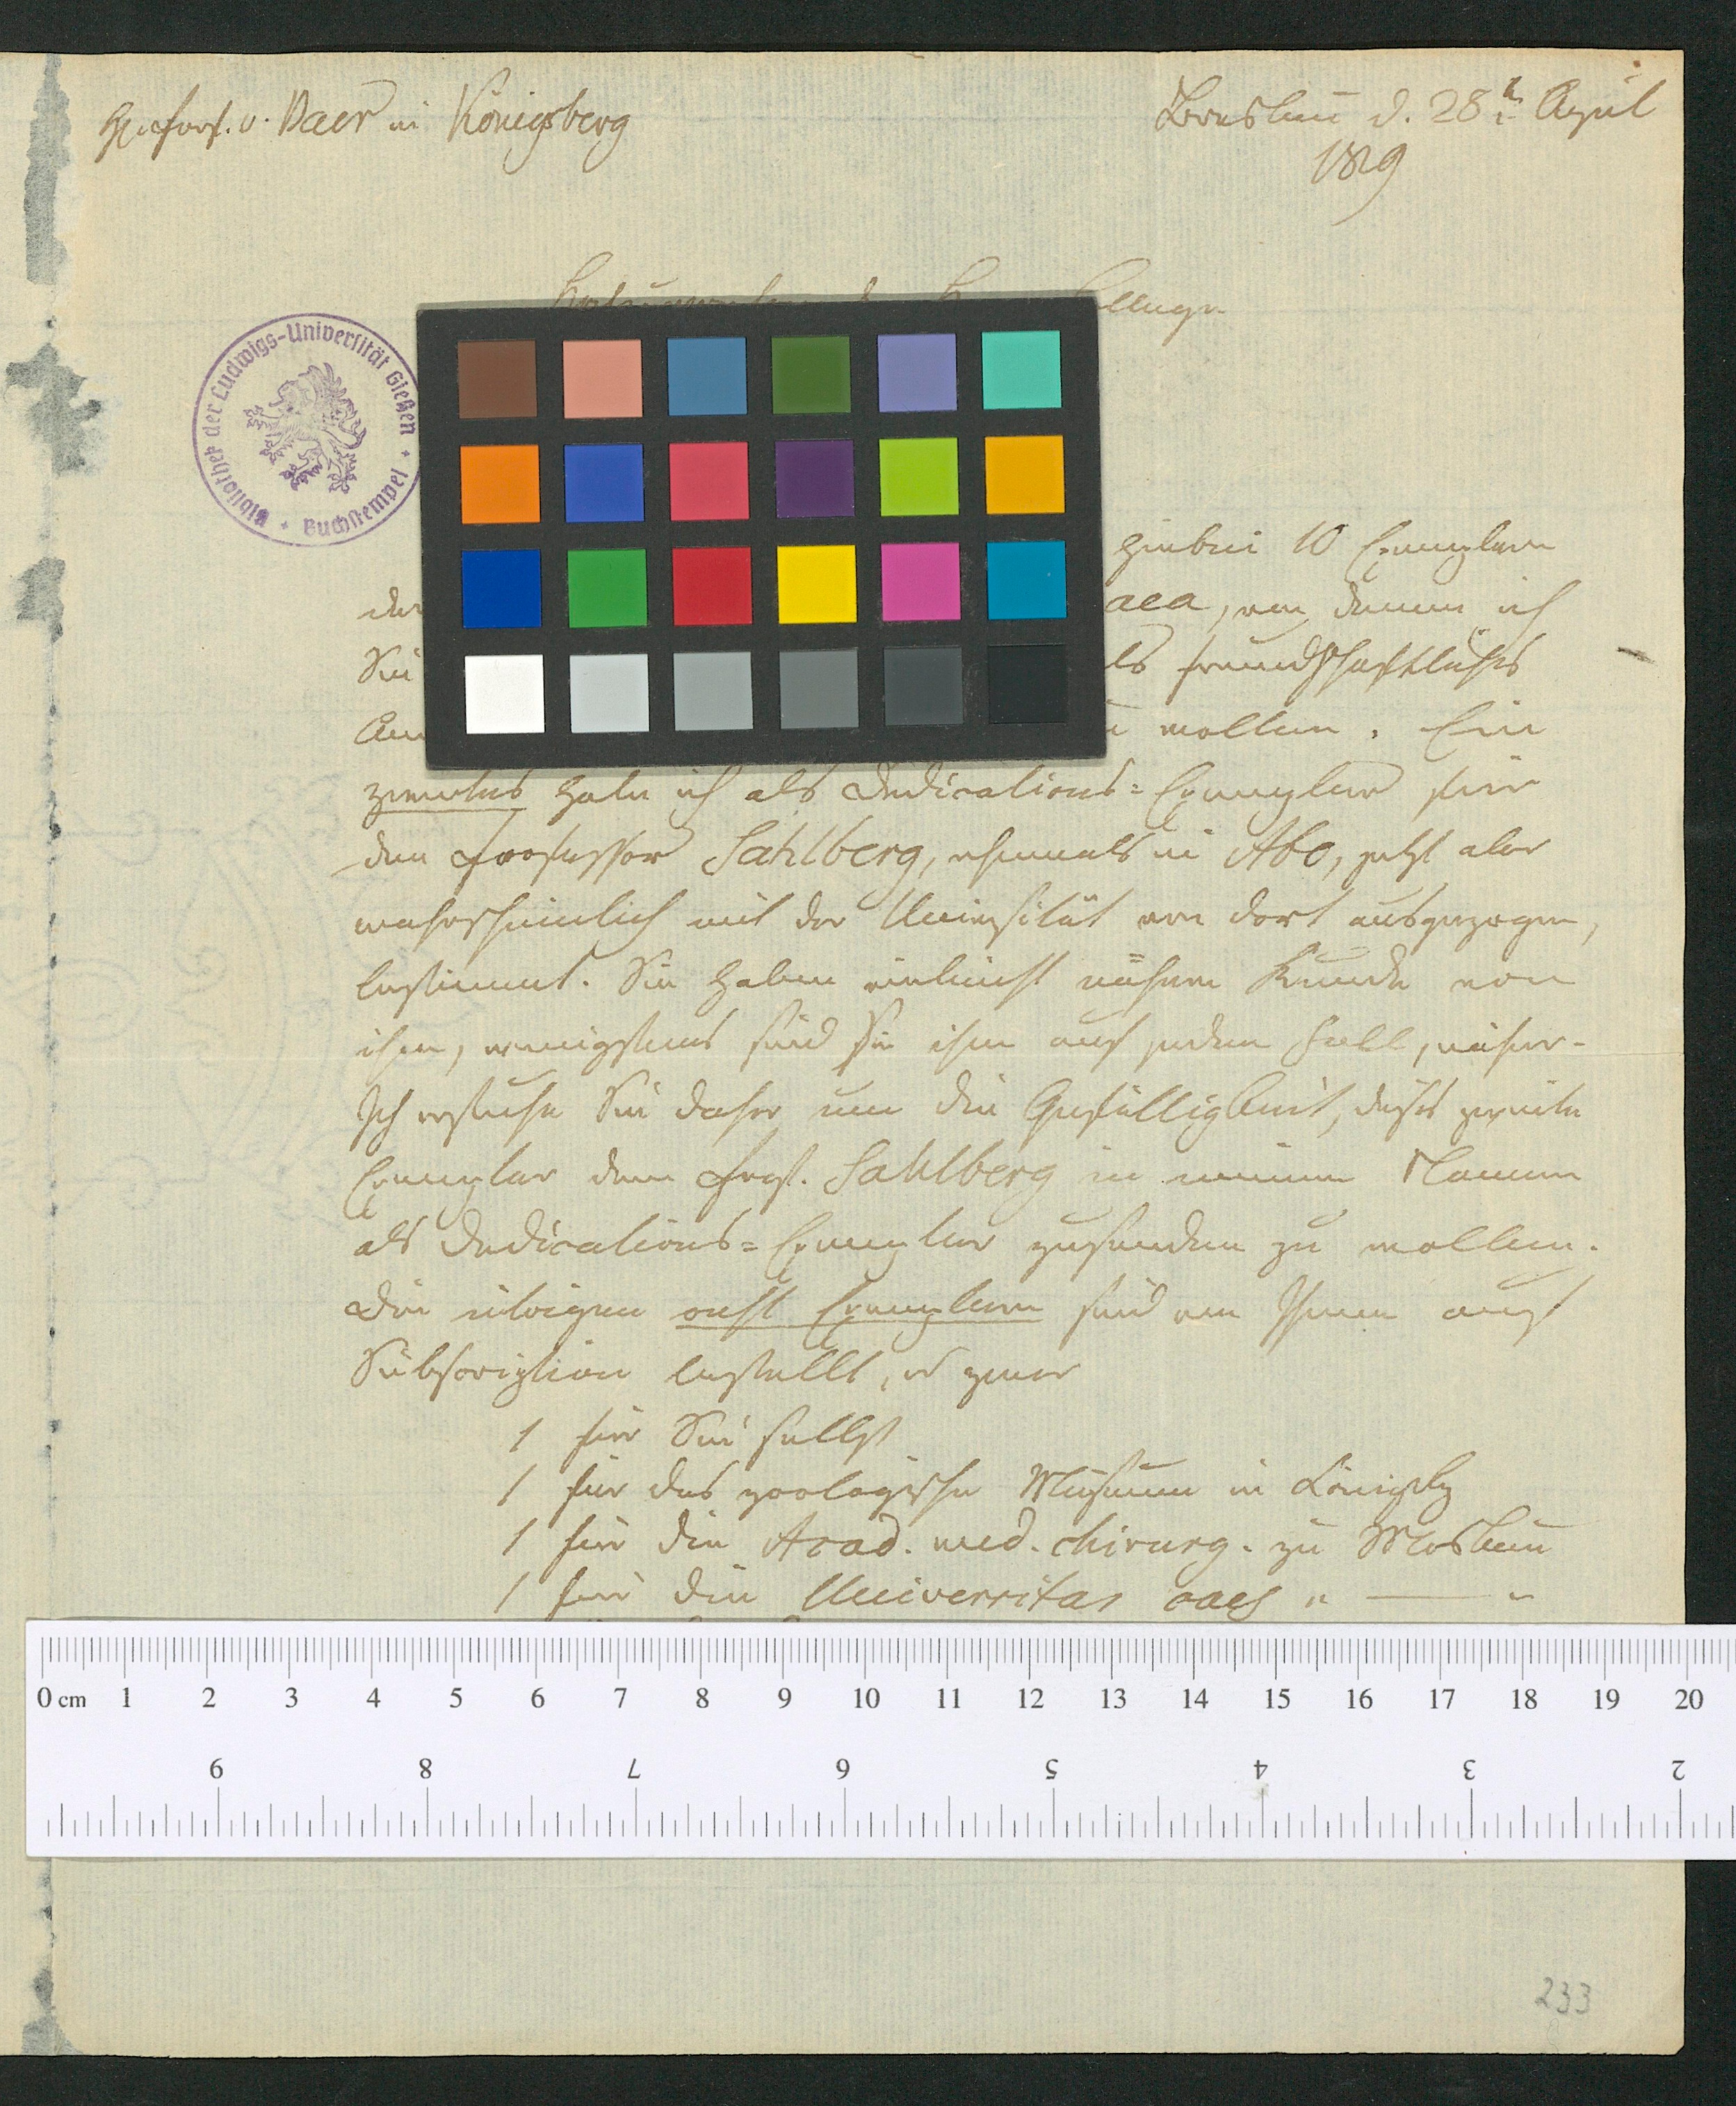 H Profess. v. Baer in Königsberg
Breslau d. 28t April
1829
Bibliothek der Ludwigs-Universität Gießen
Buchstempel
hiebei 10 Exemplare
der
aea, von denen ich
Sie
als freundschaftliches
An
wollen. Ein
zweites habe ich als Dedications=Exemplar für
den Professor Sahlberg, ehemals in Abo, jetzt aber
wahrscheinlich mit der Universität von dort ausgezogen,
bestimmt. Sie haben vielleicht nähere Kunde von
ihm, wenigstens sind Sie ihm auf jeden Fall, näher.
Ich ersuche Sie daher um die Gefälligkeit, dieses zweite
Exemplar dem Prof. Sahlberg in meinem Namen
als Dedications=Exemplar zusenden zu wollen.
Die übrigen acht Exemplare sind von Ihnen auf
Subscription bestellt, u zwar
1 für Sie selbst
1 für das zoologische Museum in Königsbg
1 für die Acad. med. chirurg. zu Moskau
1 für die Universitas caes " — "
0 cm 1 2 3 4 5 6 7 8 9 10 11 12 13 14 15 16 17 18 19 20
9 8 7 6 5 4 3 2
233